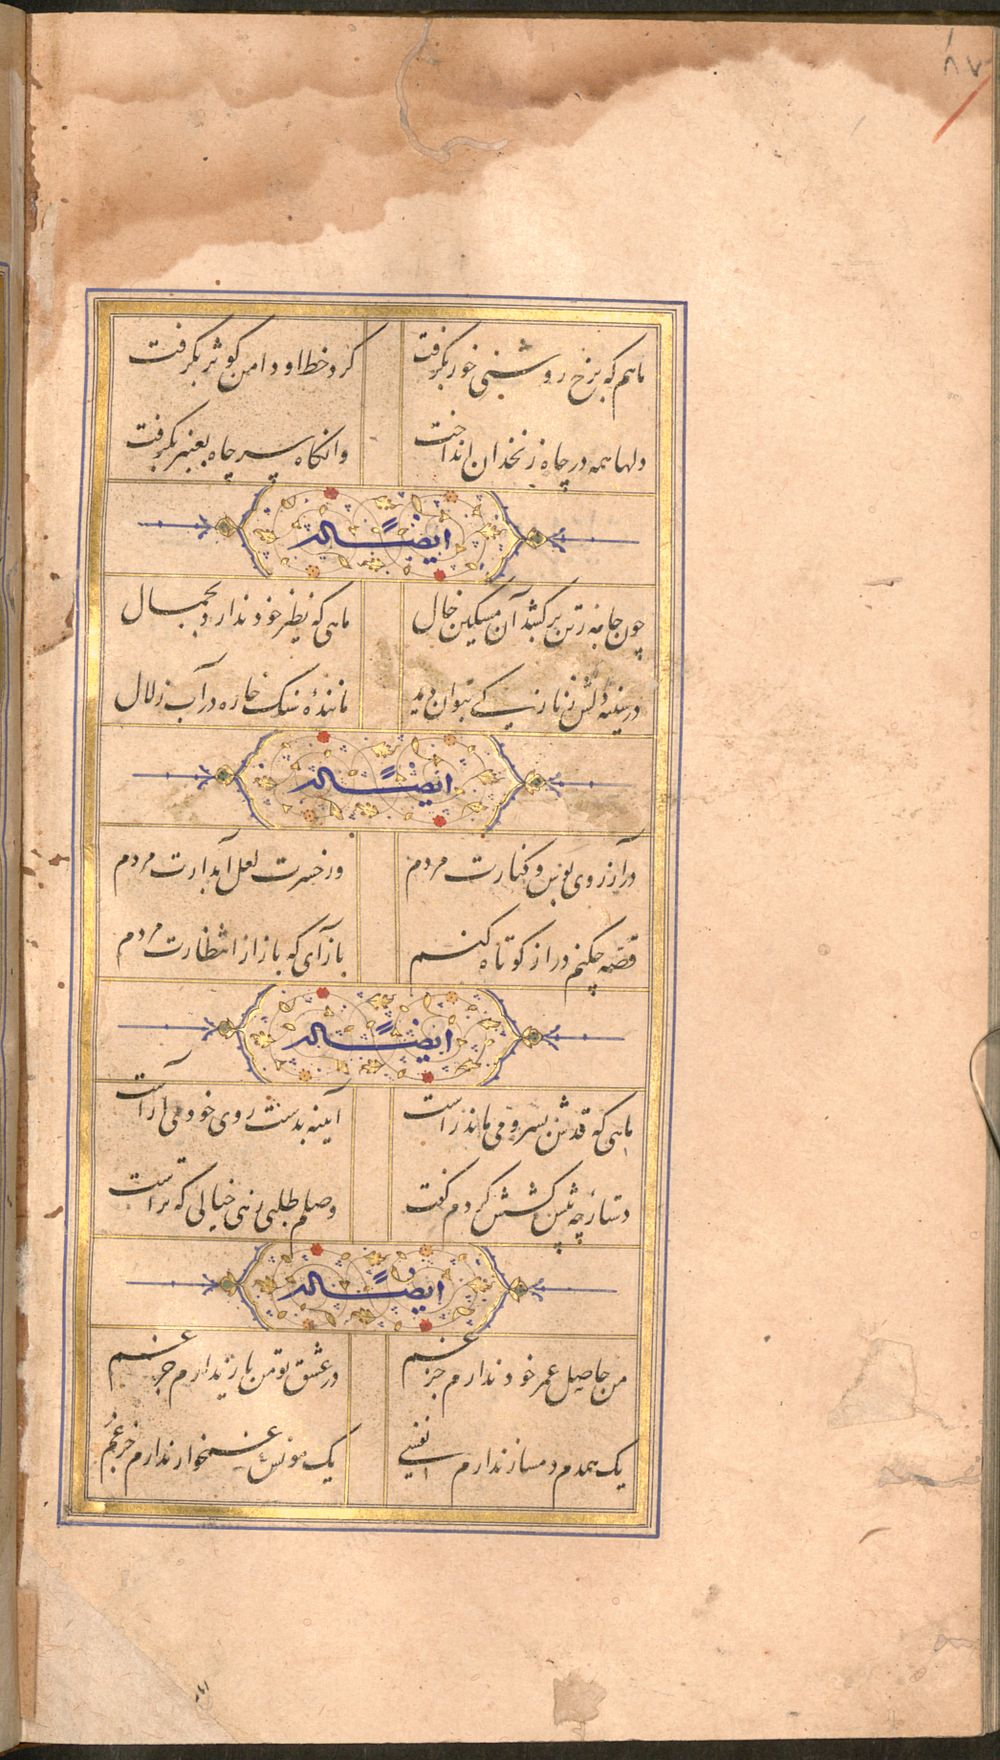 ۸۷
ماهم که برخ روشنی خور بگرفت گرد خط او دامن کوثر بگرفت
دلها همه در چاه زنخدان انداخت وانگاه سر چاه بعنبر بگرفت
ایضاً له
چون جامه زتن برکشد آن مشکین خال ماهی که نظیر خود ندارد بجمال
در سینه دلش ز نازکی بتوان دید مانندهٔ سنک خاره در آب زلال
ایضاً له
در آرزوی بوس و کنارت مردم وز حسرت لعل آبدارت مردم
قصه چکنم دراز کوتاه کنم باز آی که باز از انتظارت مردم
ایضاً له
ماهی که قدش بسرو می ماند راست آیینه بدست روی خود می آراست
دستارچه پیش کشش کردم گفت وصلم طلبی زهی خیالی که تراست
ایضاً له
من حاصل عمر خود ندارم جز غم در عشق تو من یار ندارم جز غم
یک همدم دمساز ندارم نفسی یک مونس غمخوار ندارم جز غم